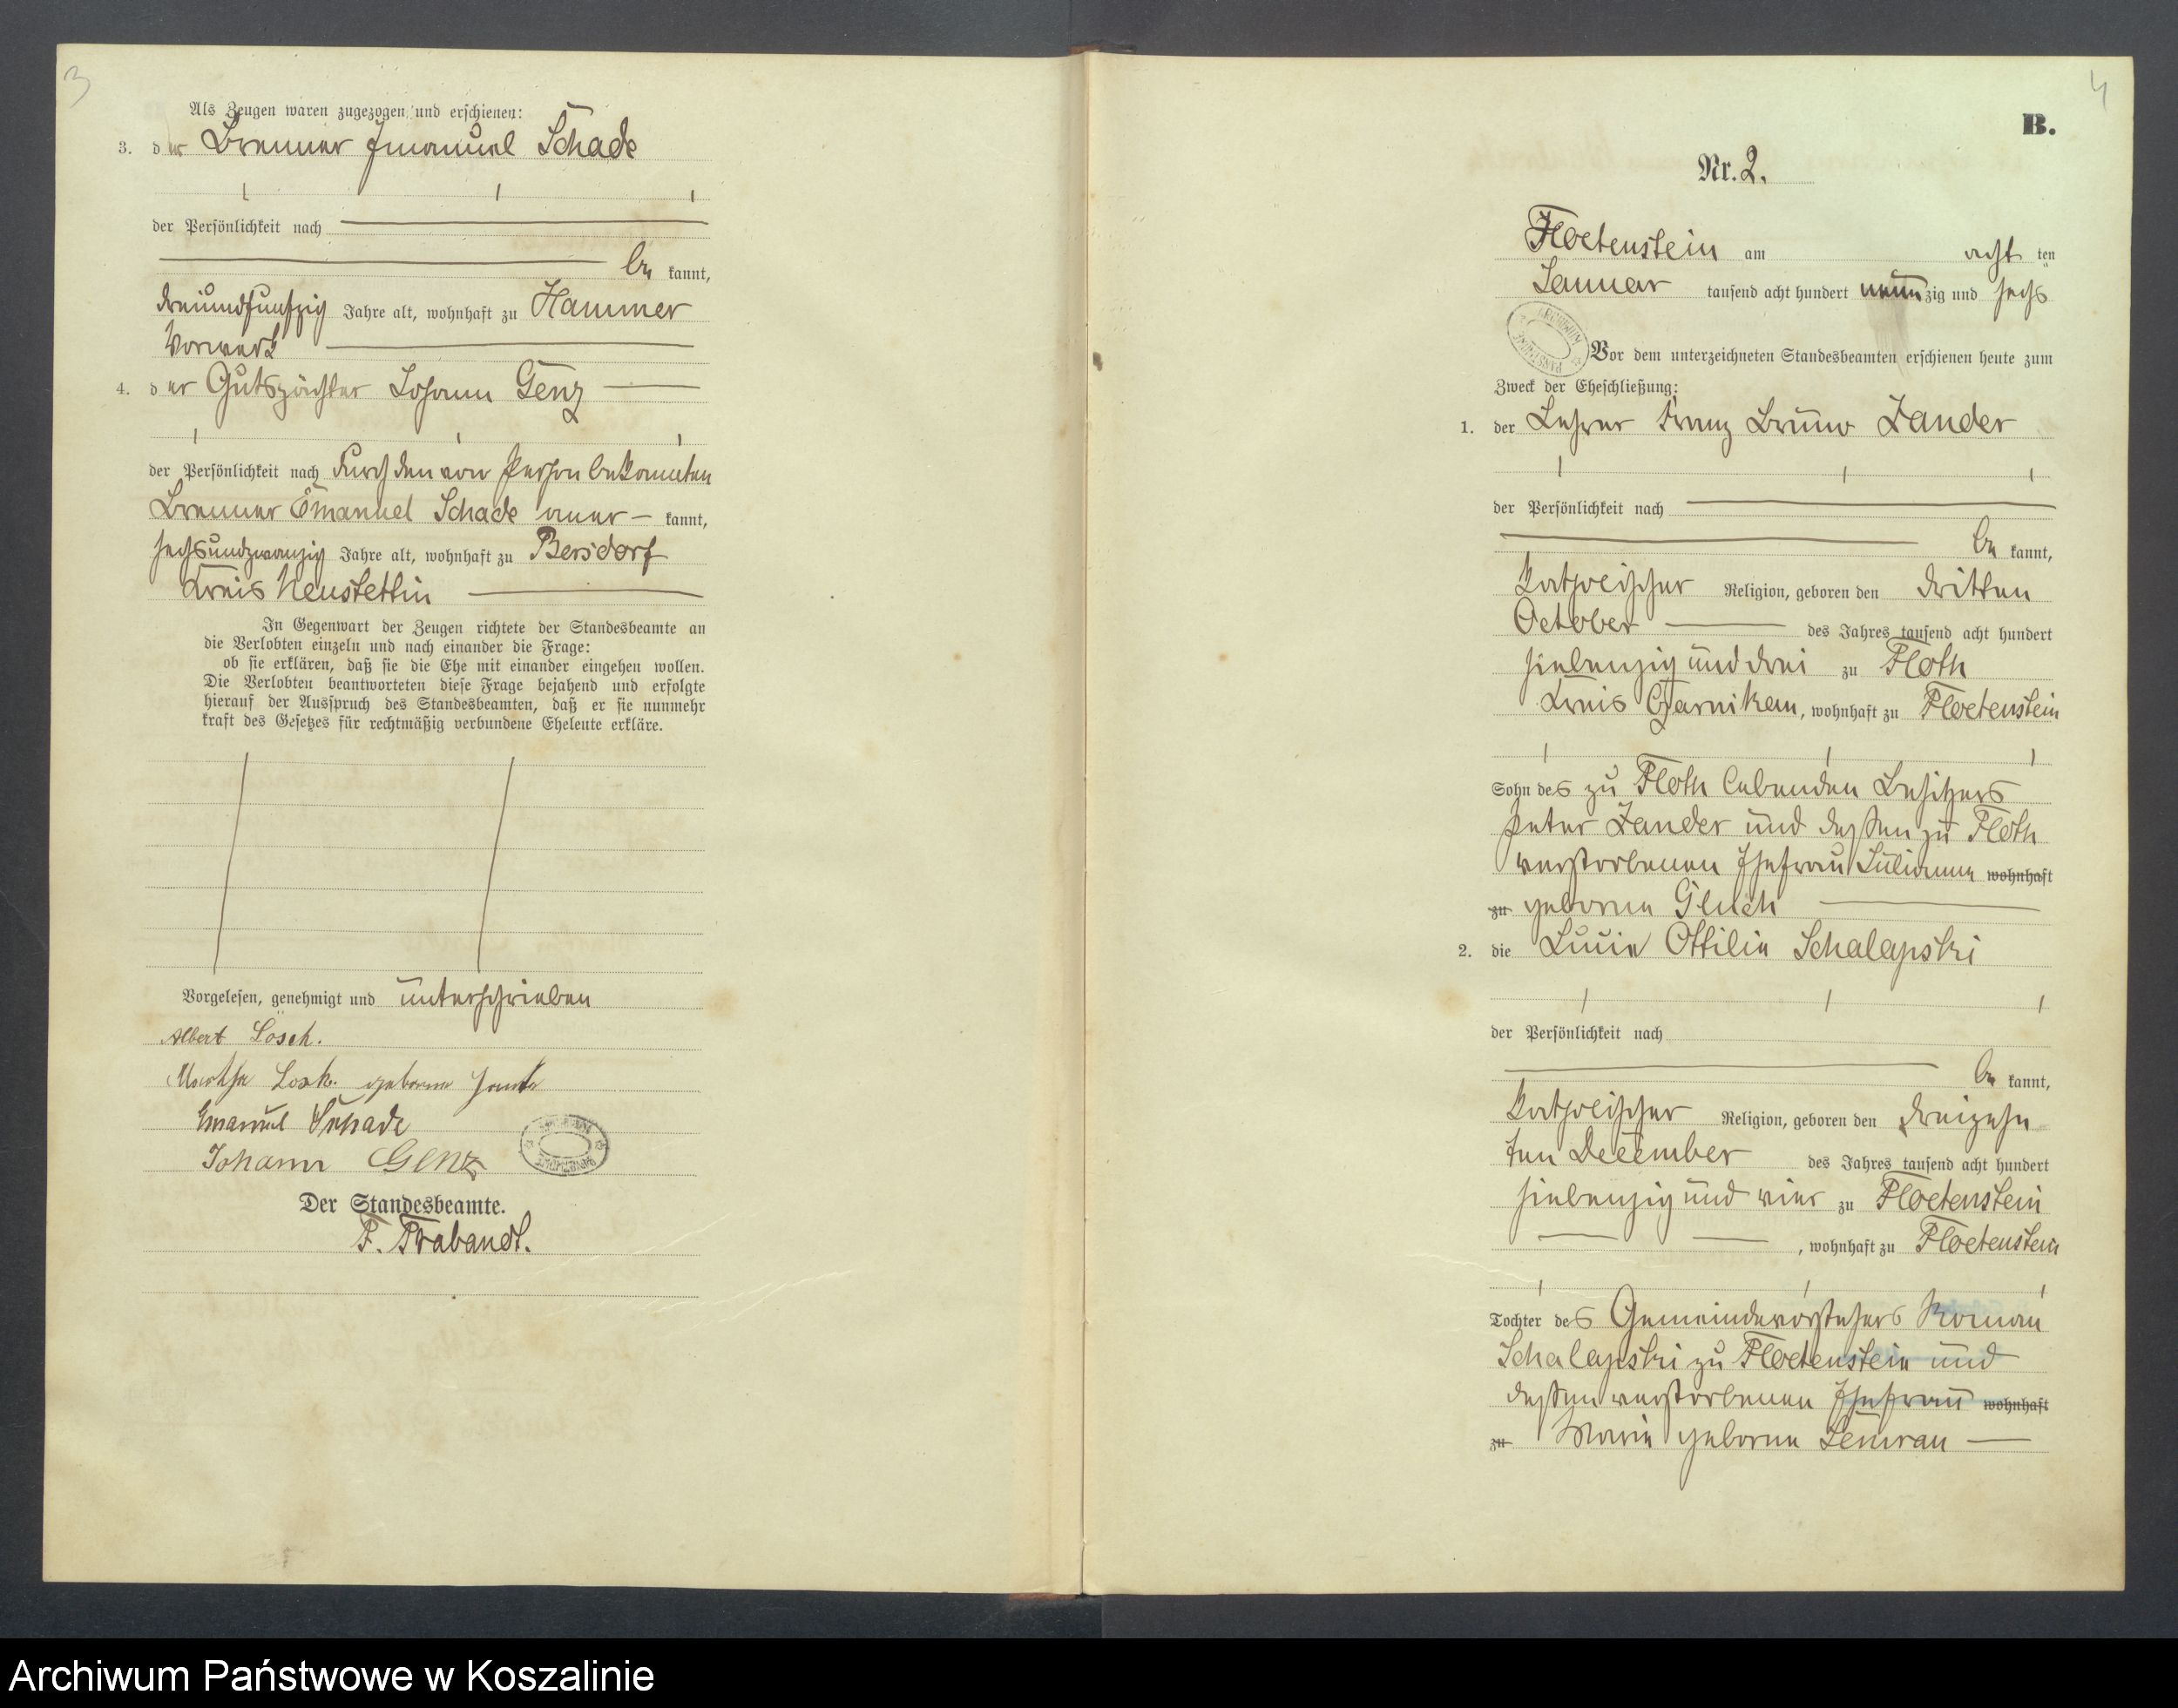 3
Als Zeugen waren zugezogen und erschienen:
3. der Brenner Imanuel Schade
der Persönlichkeit nach
be kannt,
dreiundfunfzig Jahre alt, wohnhaft zu Hammer
Vorwerk
4. der Gutspächter Johann Genz
der Persönlichkeit nach durch den von Person bekannten
Brenner Emanuel Schade aner- kannt,
sechsundzwanzig Jahre alt, wohnhaft zu Bersdorf
Kreis Neustettin
In Gegenwart der Zeugen richtete der Standesbeamte an
die Verlobten einzeln und nach einander die Frage:
ob sie erklären, daß sie die Ehe mit einander eingehen wollen.
Die Verlobten beantworteten diese Frage bejahend und erfolgte
hierauf der Ausspruch des Standesbeamten, daß er sie nunmehr
kraft des Gesetzes für rechtmäßig verbundene Eheleute erkläre.
Vorgelesen, genehmigt und unterschrieben
Albert Lösch.
Martha Losch. geborene
Emanuel Schade
Johann Genz
Der Standesbeamte.
F. Trabandt.
4
B.
Nr. 2.
Floetenstein am acht ten
Januar tausend acht hundert neun zig und sechs
Vor dem unterzeichneten Standesbeamten erschienen heute zum
Zweck der Eheschließung:
1. der Lehrer Franz Bruno Zander
der Persönlichkeit nach
be kannt,
katholischer Religion, geboren den dritten
October des Jahres tausend acht hundert
siebenzig und drei zu Floth
Kreis Czarnikau, wohnhaft zu Floetenstein
Sohn des zu Floth lebenden Besitzers
Peter Zander und dessen zu Floth
verstorbenen Ehefrau Julianne wohnhaft
zu geborne Gluch
2. die Lucie Ottilie Schalapski
der Persönlichkeit nach
be kannt,
katholischer Religion, geboren den dreizehn
ten December des Jahres tausend acht hundert
siebenzig und vier zu Floetenstein
, wohnhaft zu Floetenstein
Tochter des Gemeindevorstehers Roman
Schalapski zu Floetenstein und
dessen verstorbenen Ehefrau wohnhaft
zu Marie geborne Semrau
Archiwum Państwowe w Koszalinie